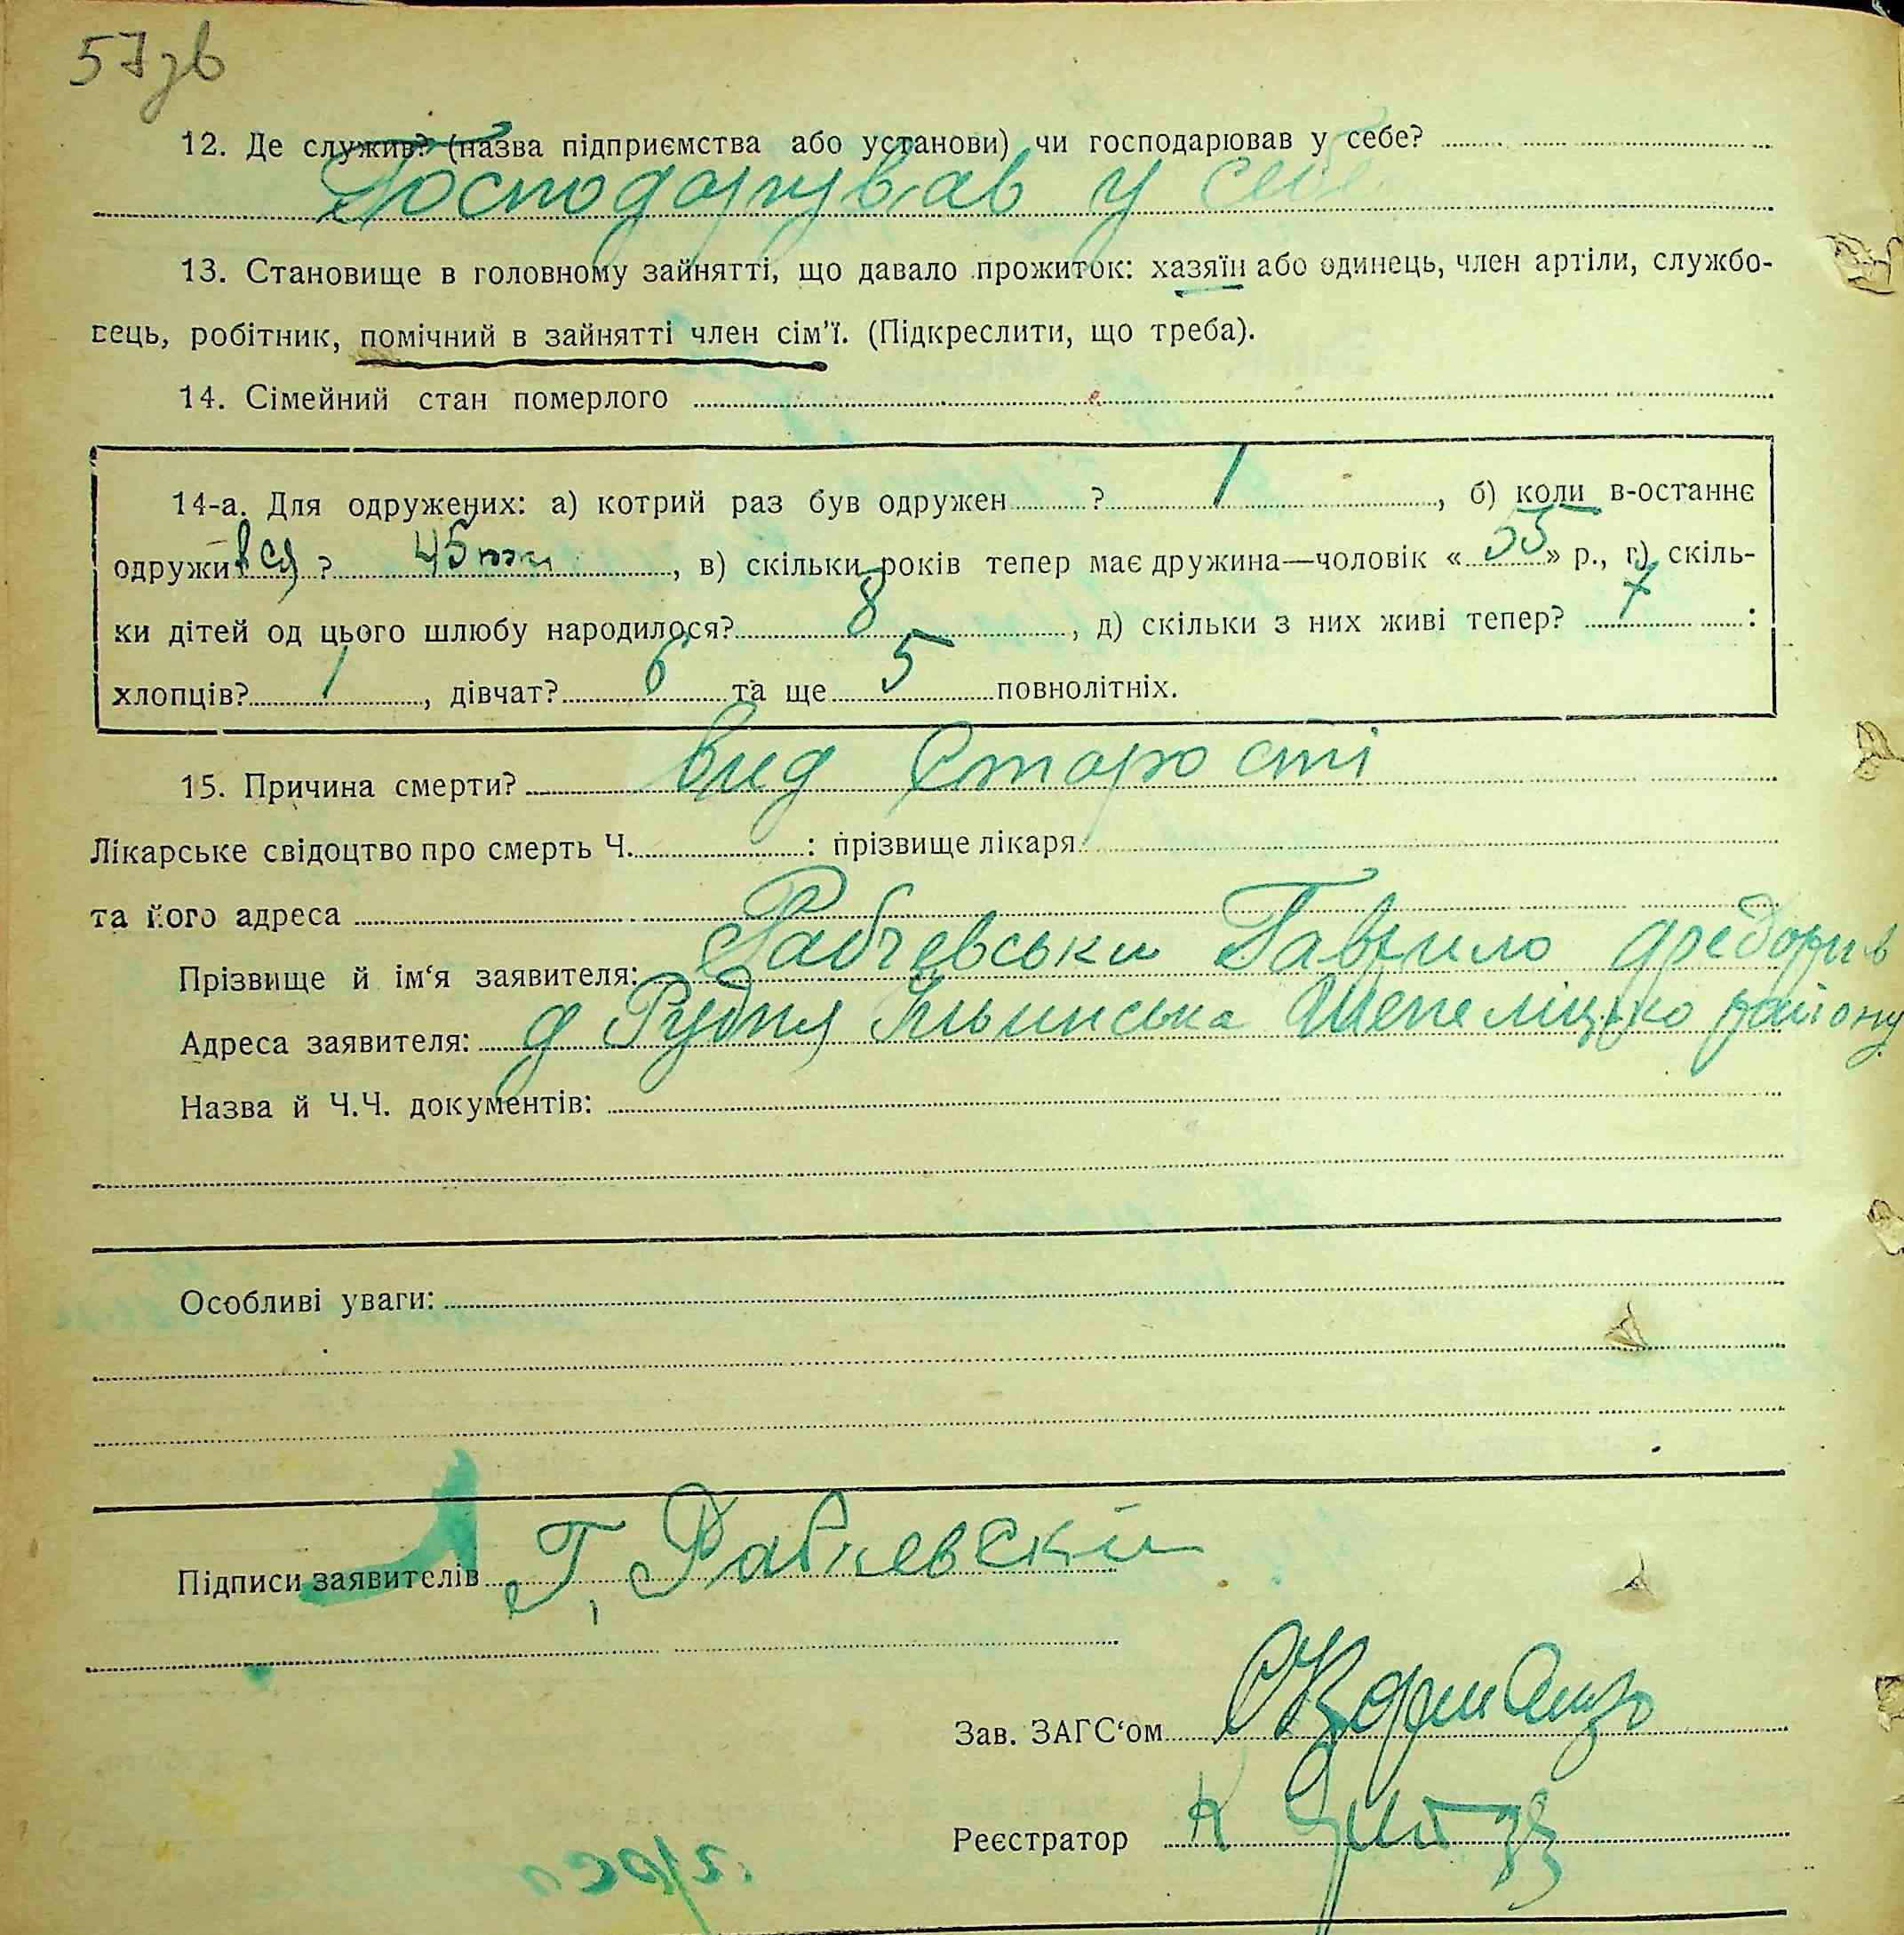 57зв
12. Де служив? (назва підприємства або установи) чи господарював у себе?
Господарував у себе
13. Становище в головному зайнятті, що давало прожиток: хазяїн або одинець, член артіли, службо-
вець, робітник, помічний в зайнятті член сім'ї. (Підкреслити, що треба).
14. Сімейний стан померлого
14-а. Для одружених: а) котрий раз був одружен ? 1, б) коли в-останнє
одружився ? 45, в) скільки років тепер має дружина—чоловік «55» р., г) скіль-
ки дітей од цього шлюбу народилося? 8, д) скільки з них живі тепер? 7 :
хлопців? 1, дівчат? 6 та ще 5 повнолітніх.
15. Причина смерти? вид Старости
Лікарське свідоцтво про смерть Ч. : прізвище лікаря
та його адреса
Прізвище й ім'я заявителя: Рабчевськи Гаврило Федорив
Адреса заявителя: д Рудня Ільинська Шепеліцько району
Назва й Ч.Ч. документів:
Особливі уваги:
Підписи заявителів Г. Рабчевскій
Зав. ЗАГС'ом
Реєстратор К